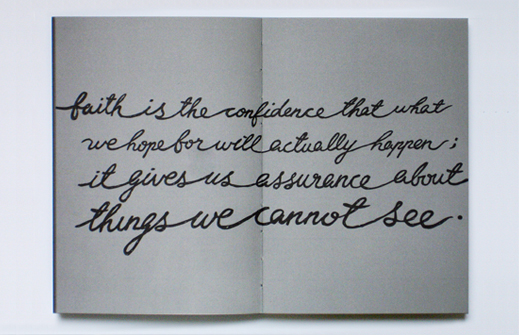 faith is the confidence that what
we hope for will actually happen;
it gives us assurance about
things we cannot see.